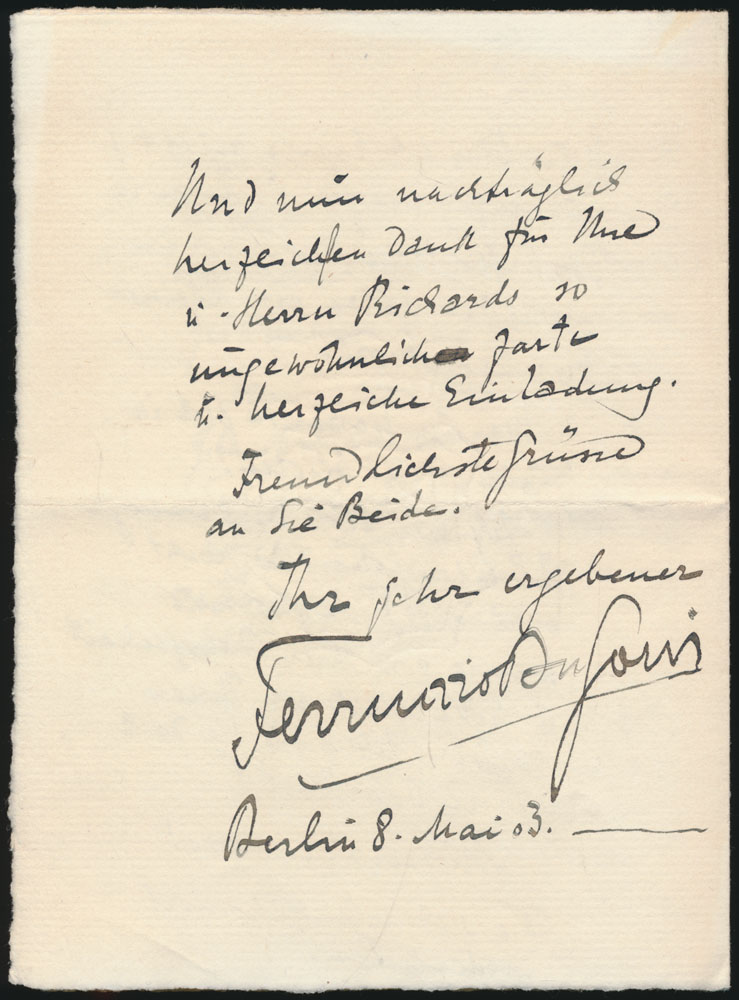 Und nun nachträglich
herzlichen Dank für Ihre
u. Herrn Richards so
ungewöhnlich zarte
u. herzliche Einladung.
Freundlichste Grüsse
an Sie Beide.
Ihr sehr ergebener
Ferruccio Busoni
Berlin 8. Mai 03.